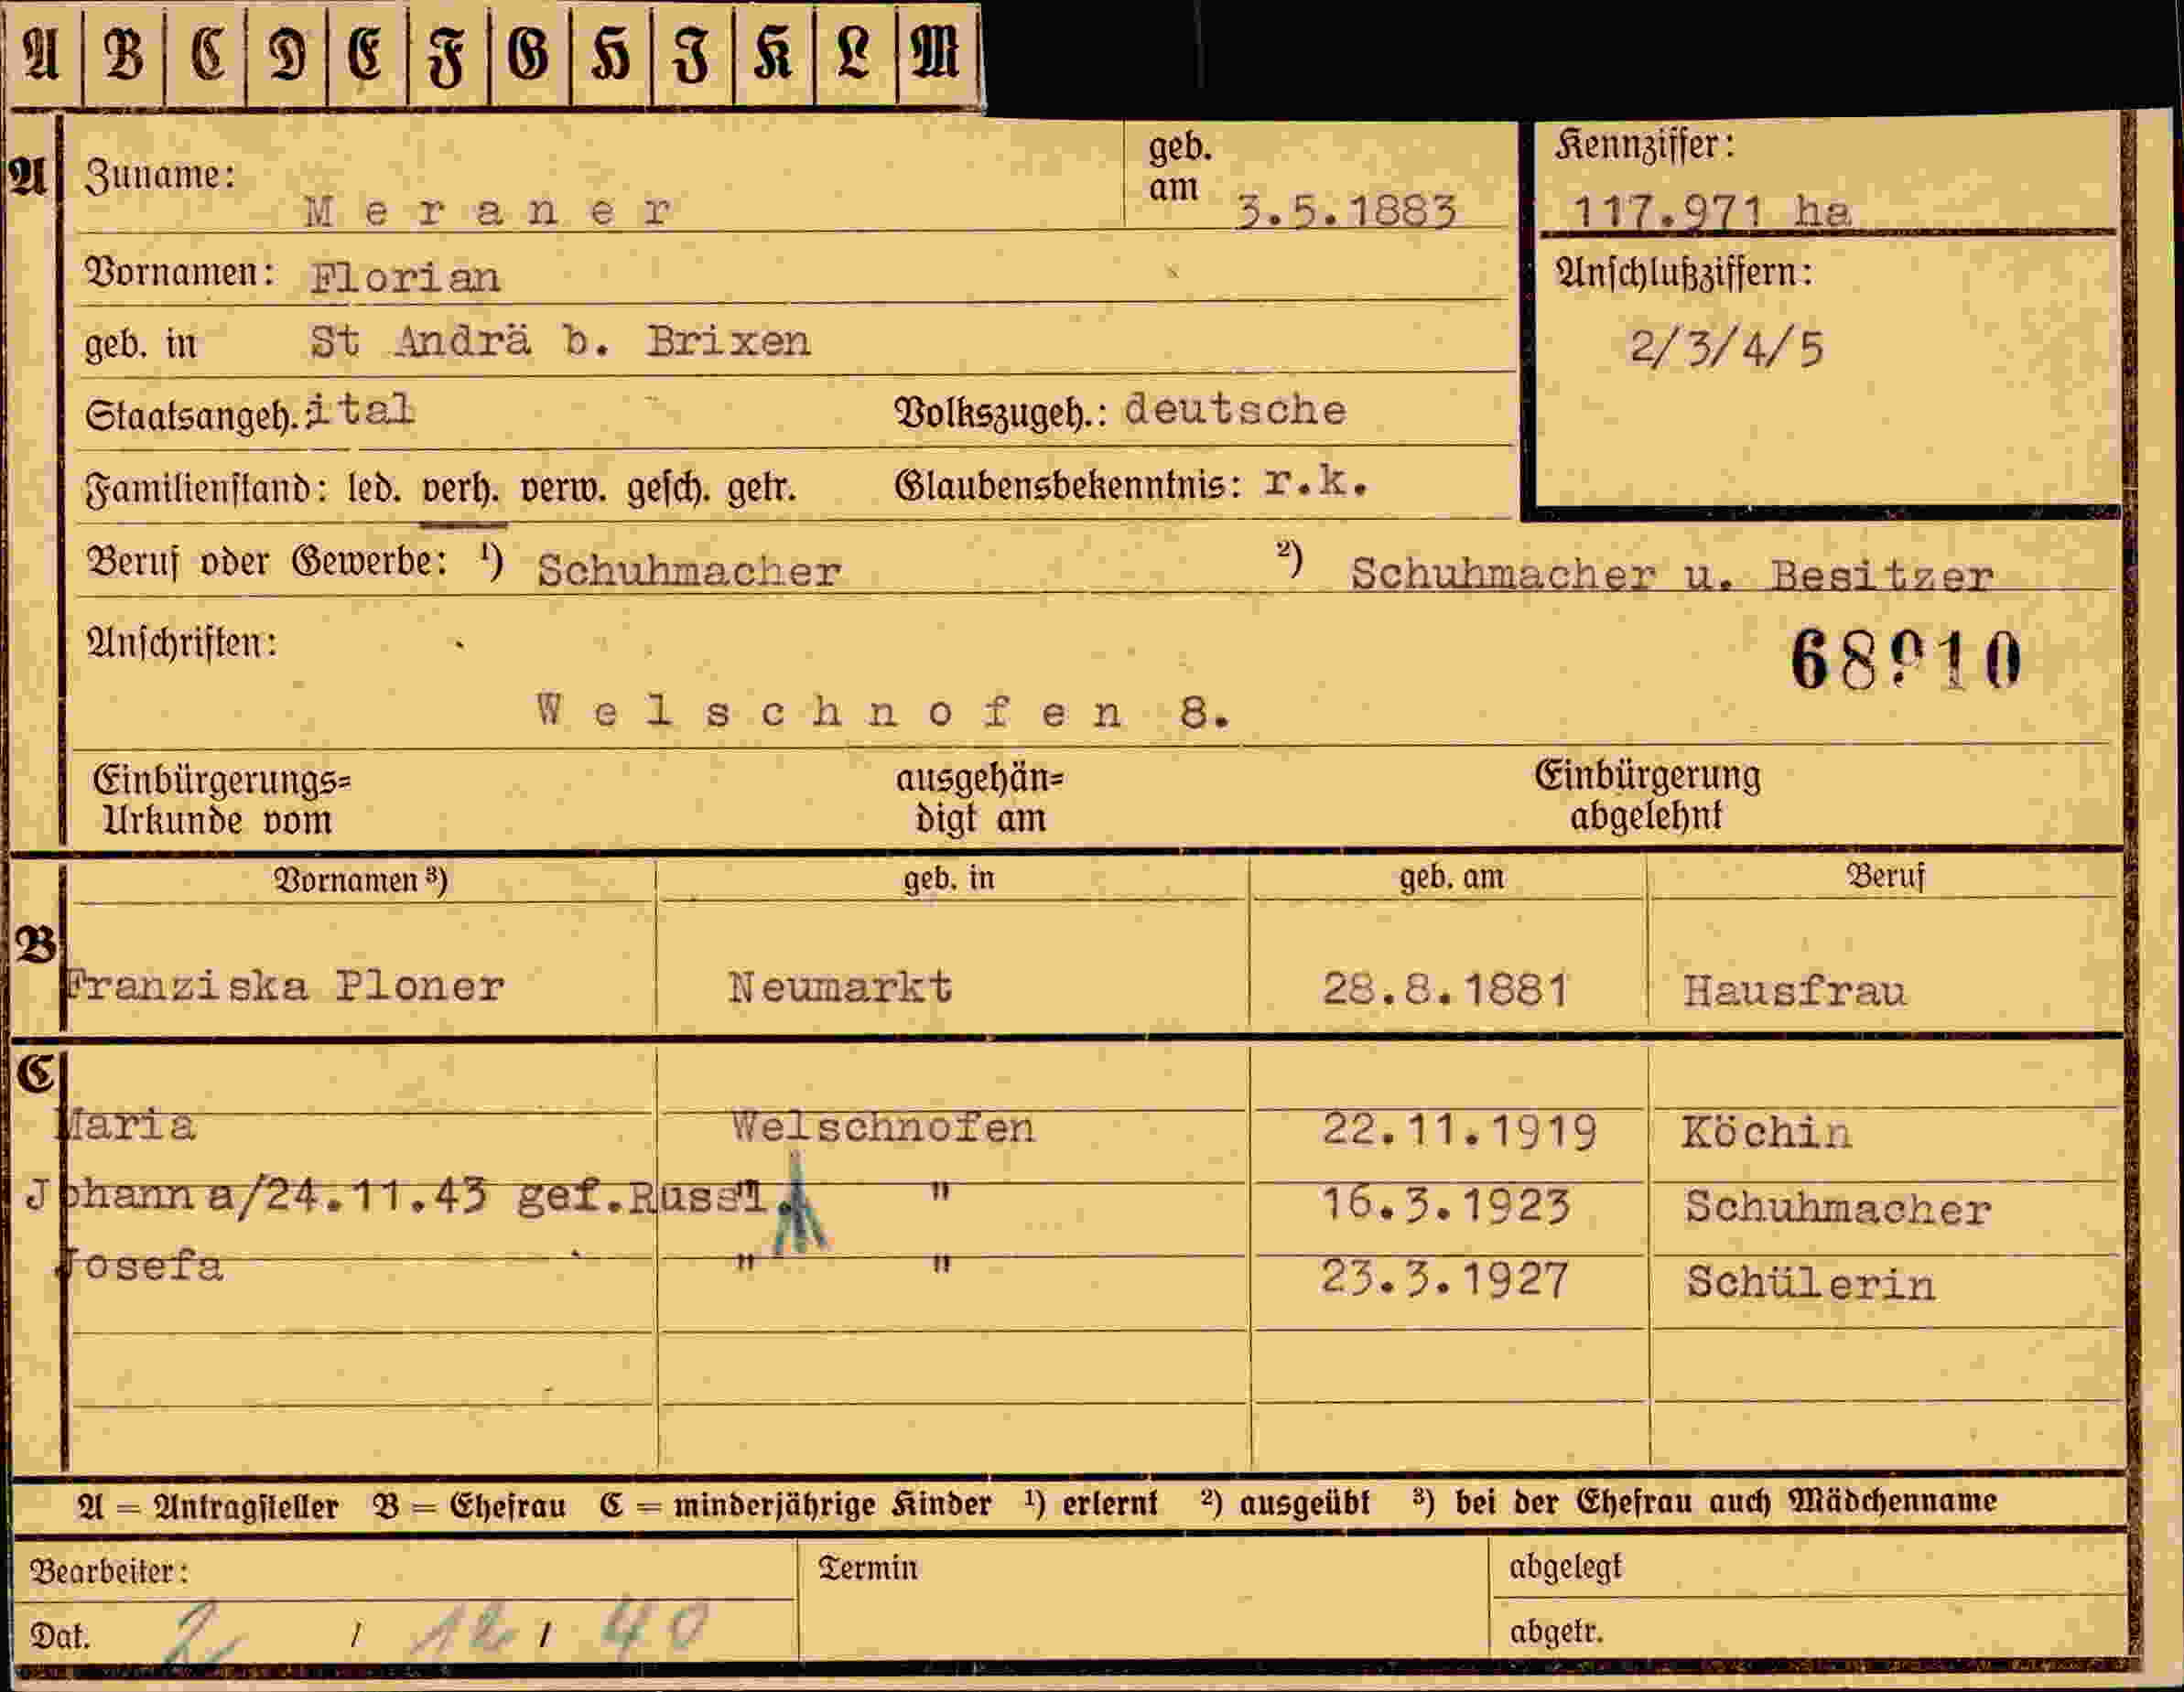 A B C D E F G H I K L M
A Zuname: Meraner geb. am 3.5.1883 Kennziffer: 117.971 ha
Vornamen: Florian Anschlußziffern:
geb. in St Andrä b. Brixen 2/3/4/5
Staatsangeh. ital Volkszugeh.: deutsche
Familienstand: led. verh. verw. gesch. getr. Glaubensbekenntnis: r.k.
Beruf oder Gewerbe: ¹) Schuhmacher ²) Schuhmacher u. Besitzer
Anschriften:
68910
Welschnofen 8.
Einbürgerungs= ausgehän= Einbürgerung
Urkunde vom digt am abgelehnt
Vornamen ³) geb. in geb. am Beruf
B
Franziska Ploner Neumarkt 28.8.1881 Hausfrau
C
Maria Welschnofen 22.11.1919 Köchin
Johann a/24.11.43 gef.Russl. " " 16.3.1923 Schuhmacher
Josefa " " 23.3.1927 Schülerin
A = Antragsteller B = Ehefrau C = minderjährige Kinder ¹) erlernt ²) ausgeübt ³) bei der Ehefrau auch Mädchenname
Bearbeiter: Termin abgelegt
Dat. 2 / 12 / 40 abgetr.